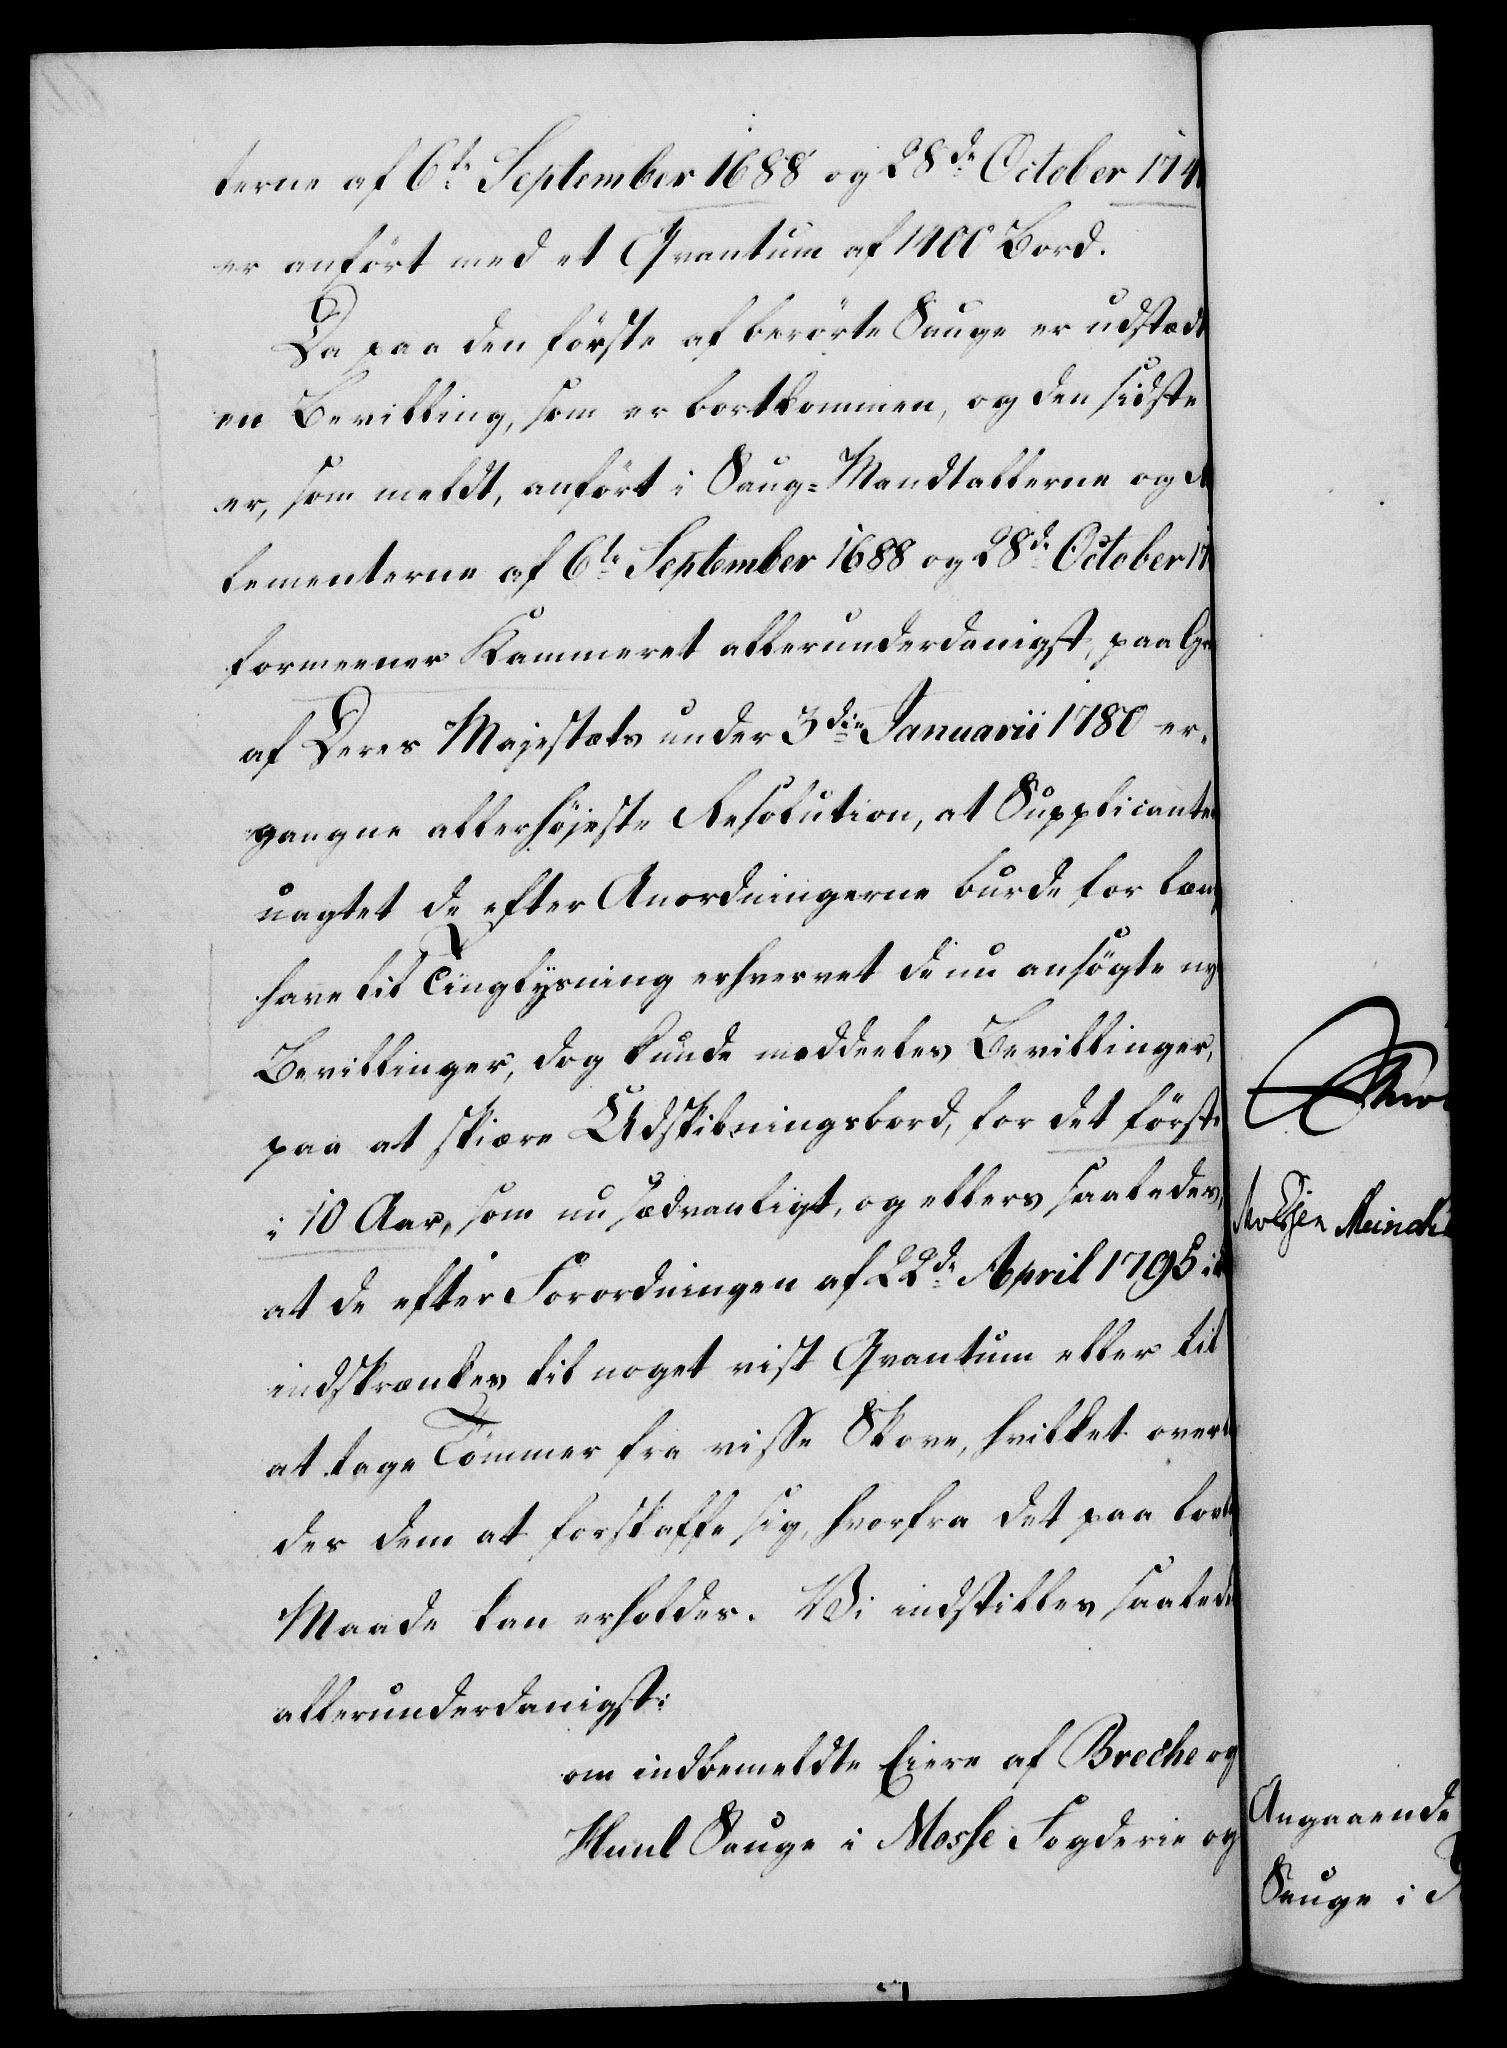 terne af 6te September 1688 og 28de October 174
er anført med et Qvantum af 1400 Bord.
Da paa den første af berørte Sauge er udstædt
en Bevilling, som er bortkommen, og den sidste
er, som meldt, anført i Saug-Mandtallerne og
lementerne af 6te September 1688 og 28de October 17
formeener Kammeret allerunderdanigst, paa
af Deres Majestæts under 3die Januarii 1780 er-
gangne allerhøjeste Resolution, at Supplicanter
uagtet de efter Anordningerne burde for
have til Tinglysning erhvervet de nu ansøgte ny
Bevillinger, dog kunde meddeeles Bevillinger,
paa at skiære Udskibningsbord, for det første
i 10 Aar, som nu sædvanligt, og ellers saaledes,
at de efter Forordningen af 22de April 1795
indskrænkes til noget vist Qvantum eller til
at tage Tømmer fra visse Skove, hvilket over
des dem at forskaffe sig, hvorfra det paa lovl
Maade kan erholdes. Vi indstilles saalede
allerunderdanigst:
om indbemeldte Eiere af Breche og
Huul Sauge i Mosse Fogderie og
Meinche
Angaaende
Sauge i